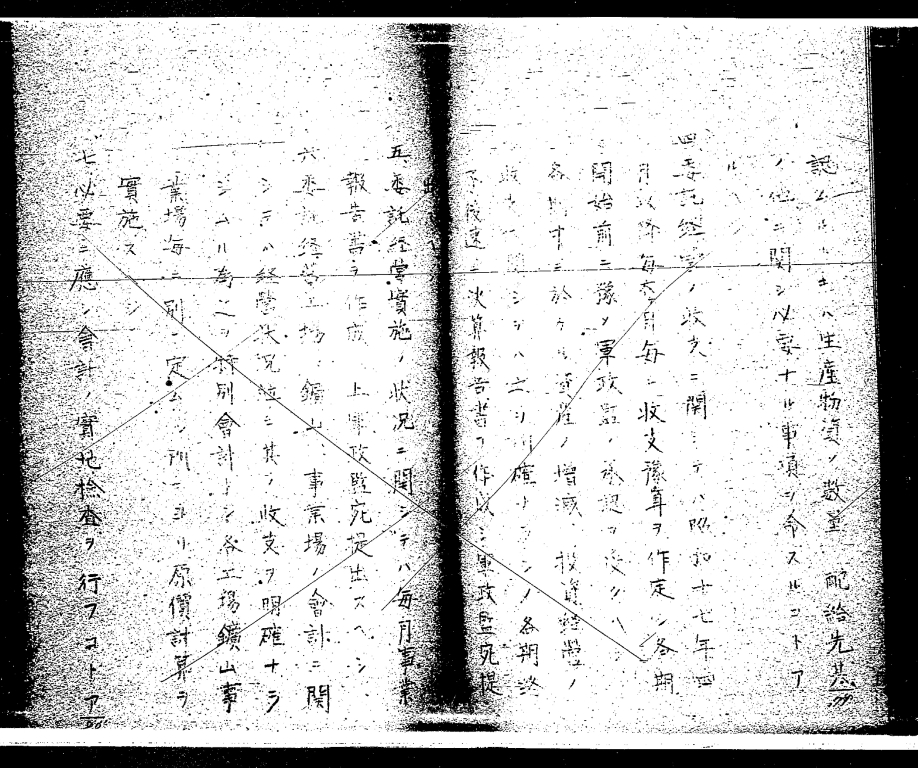 認ムルトキハ生産物資ノ數量 配給先其
ノ他ニ關シ必要ナル事項ヲ命スルコトア
ル
四 委託經營ノ收支ニ關シテハ昭和十七年四
月以降每 月每ニ收支豫算ヲ作定シ各期
開始前ニ豫メ軍政監ノ承認ヲ受クヘ
各期中ニ於ケル資産ノ增減、投資 ノ
シテハ 確ナラシメ各期終
後速ニ決算報告書ヲ作成シ軍政監宛提
出
五 委託經營實施ノ狀況ニ關シテハ每月事業
報告書ヲ作成 上軍政監宛提出スヘシ
六 委託經營工場、鑛山、事業場ノ會計ニ關
シテハ經營狀況竝ニ其ノ收支ヲ明確ナラ
シムル爲之ヲ特別會計トシ各工場鑛山事
業場每ニ別ニ定ムル所ニヨリ原價計算ヲ
實施スヘシ
七 必要ニ應シ會計ノ實地檢査ヲ行フコトア